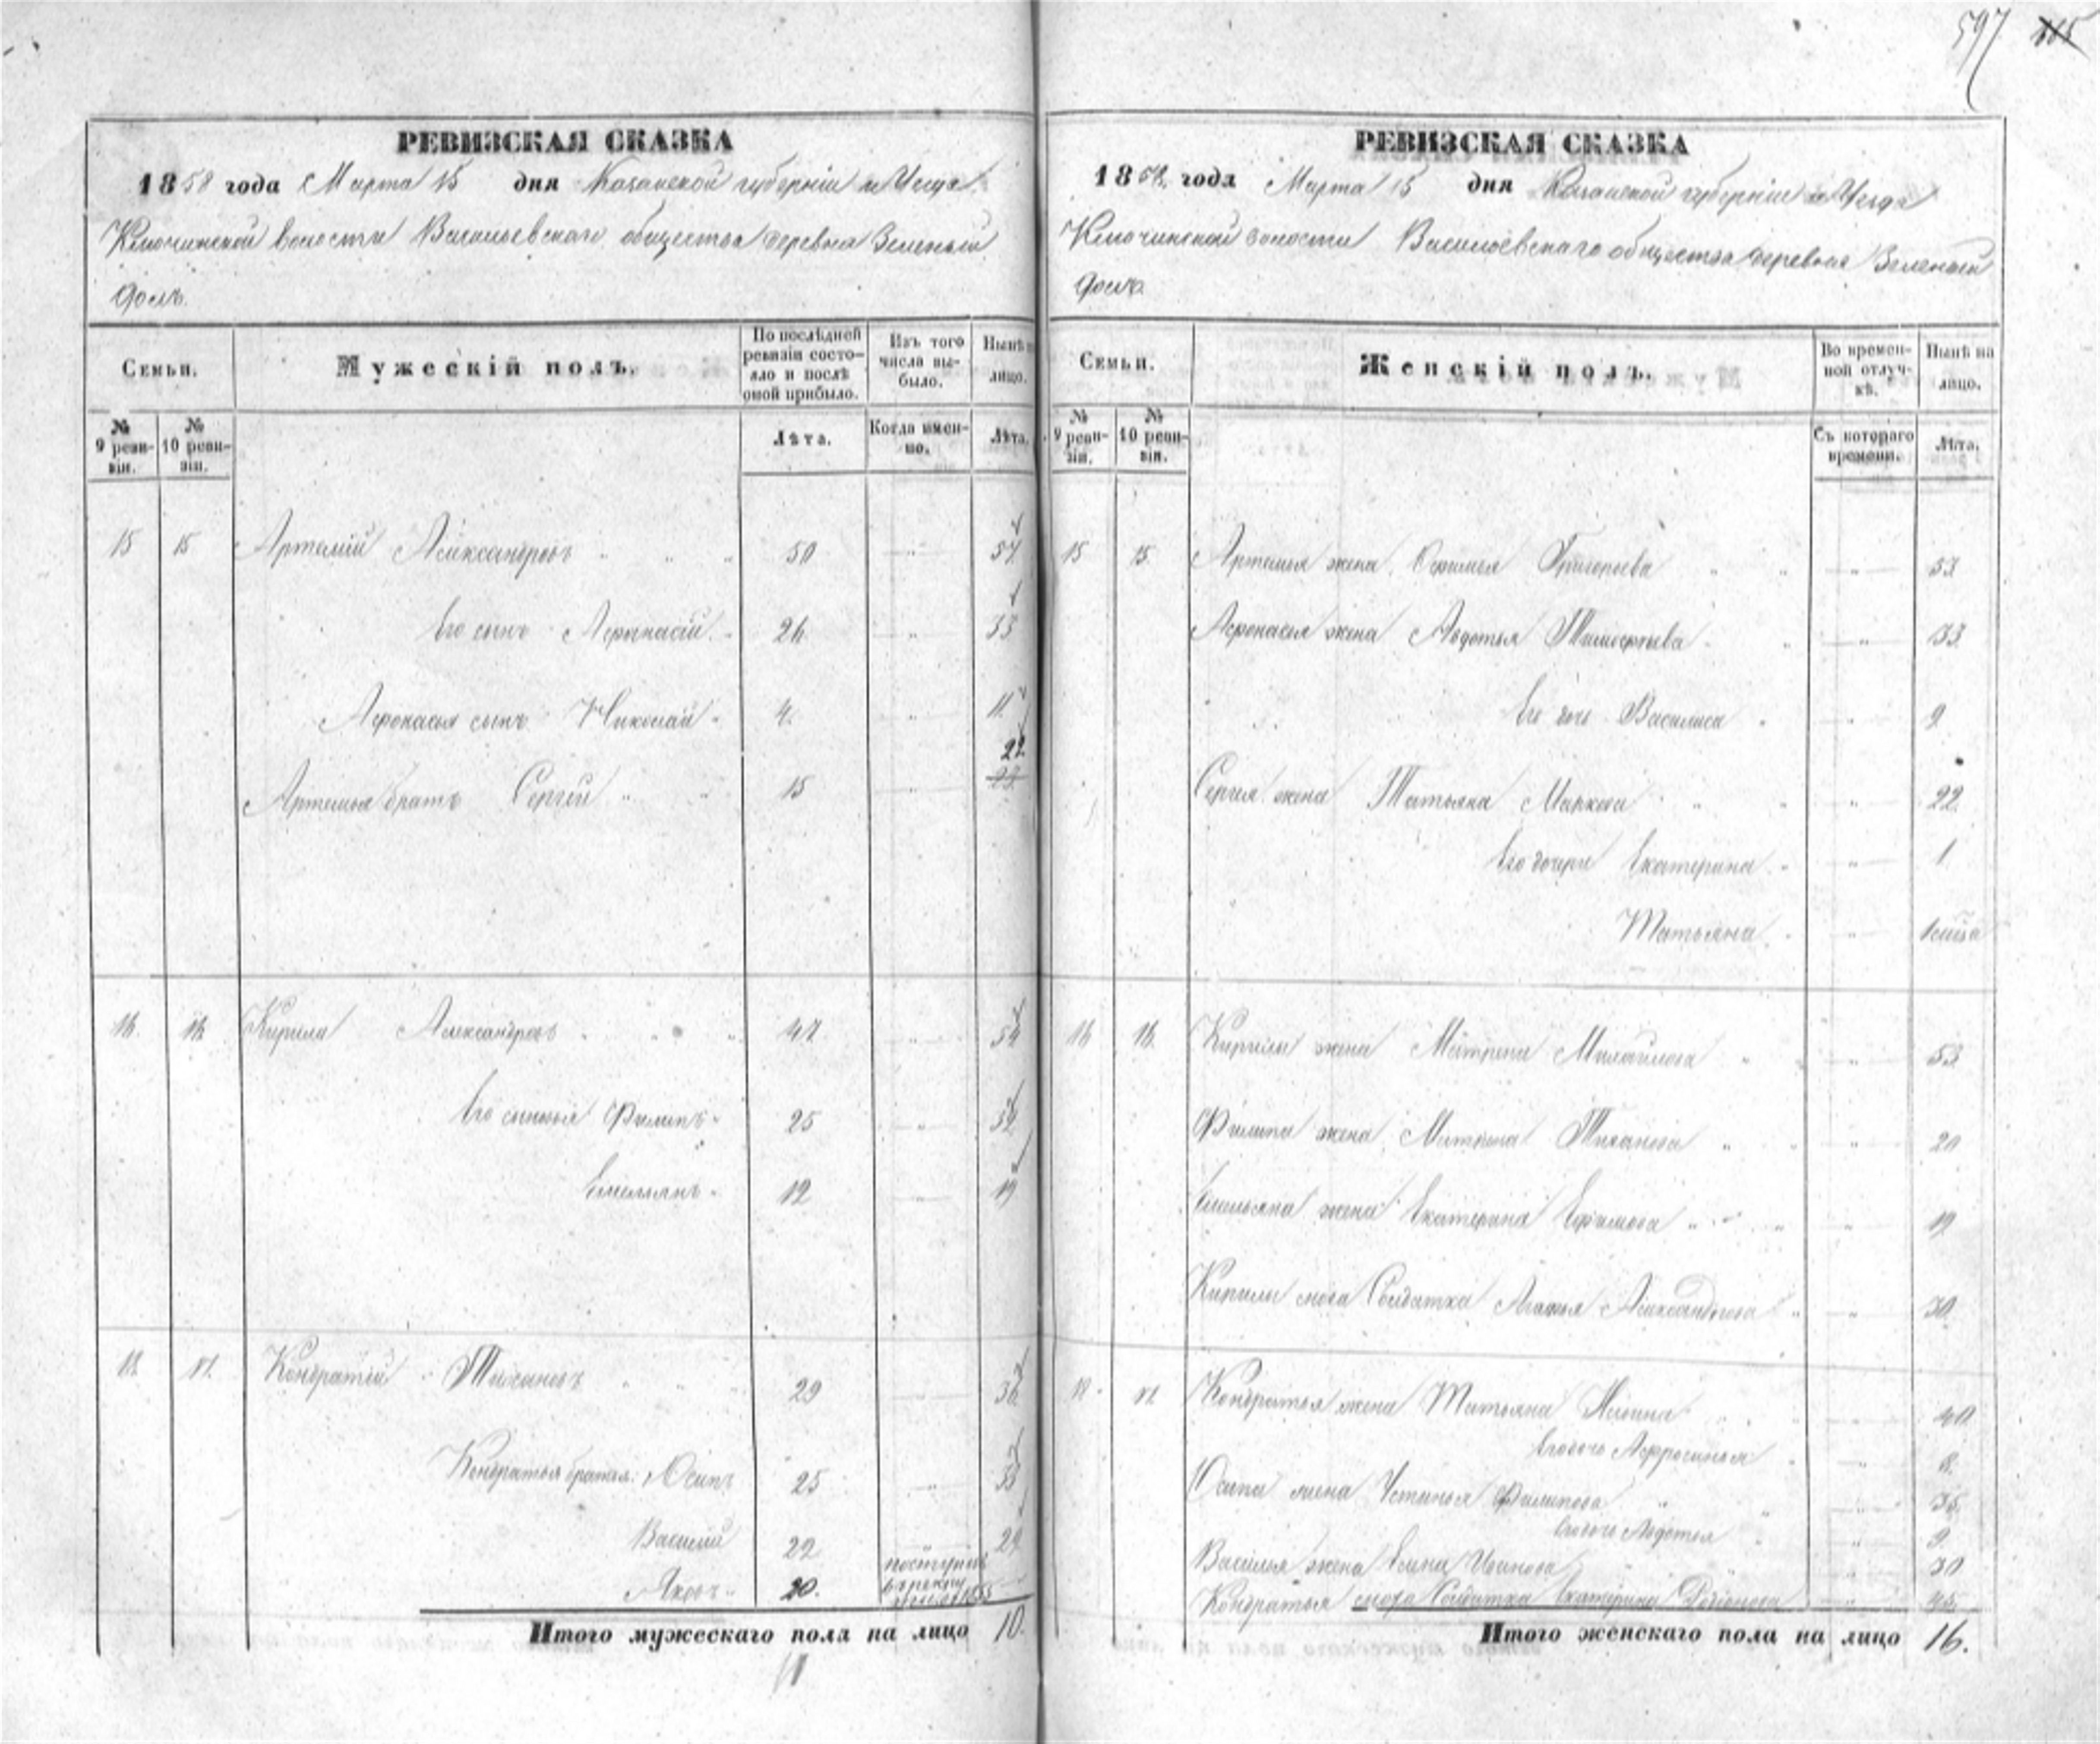 597 115
РЕВИЗСКАЯ СКАЗКА
1858 года Марта 15 дня Казанской губерніи и Уезда
Ключинской волости Васильевскаго общества деревня Зеленый
Долъ.
Семьи.
Мужескій полъ.
По послѣдней ревизіи состояло и послѣ оной прибыло.
Изъ того числа выбыло.
Нынѣ на лицо.
№ 9 ревизіи.
№ 10 ревизіи.
Лѣта.
Когда именно.
Лѣта.
15 15 Артемій Александровъ " " " 50 " 57
Его сынъ Афанасій " 26 " 33
Афонасья сынъ Николай " 4. " 11.
22
Артемья братъ Сергей " " 15 "
16. 16. Кирила Александровъ " " " 47 " 54
Его сыновья Филипъ " 25 " 32
Емельянъ " 12 " 19
18. 17. Кондратій Тихановъ " " " 29 " 36
Кондратья братья: Осипъ 25 "
Василій 22 29
Яковъ " 20. поступилъ
въ рекруты
1855
Итого мужескаго пола на лицо 10.
РЕВИЗСКАЯ СКАЗКА
1858 года Марта 15 дня Казанской губерніи и Уезда
Ключинской волости Васильевскаго общества деревня Зеленый
Долъ.
Семьи.
Женскій полъ.
Во временной отлучкѣ.
Нынѣ на лицо.
№ 9 ревизіи.
№ 10 ревизіи.
Съ котораго времени.
Лѣта.
15 15. Артемья жена Офимья Григорьева " " " 53
Афонасья жена Авдотья Тимофеева " " " 33.
Его дочь Василиса " " 9
Сергея жена Татьяна Маркова " " " 22.
Его дочери Екатерина " " 1
Татьяна " "
16 16. Кирилы жена Матрена Михайлова " " 53
Филипа жена Матрена Тиханова " " " 20
Емельяна жена Екатерина Ефимова " " " 19
Кирилы сноха Солдатка Агафья Александрова " " 30.
18 17. Кондратья жена Татьяна Ильина " " 40
Его дочь Афросинья " " 8.
Осипа жена Устинья Филипова " " " 35.
Его дочь Авдотья " " 9
Василья жена Елена Иванова " " 30
Кондратья сноха Солдатка Екатерина Родіонова " 45.
Итого женскаго пола на лицо 16.